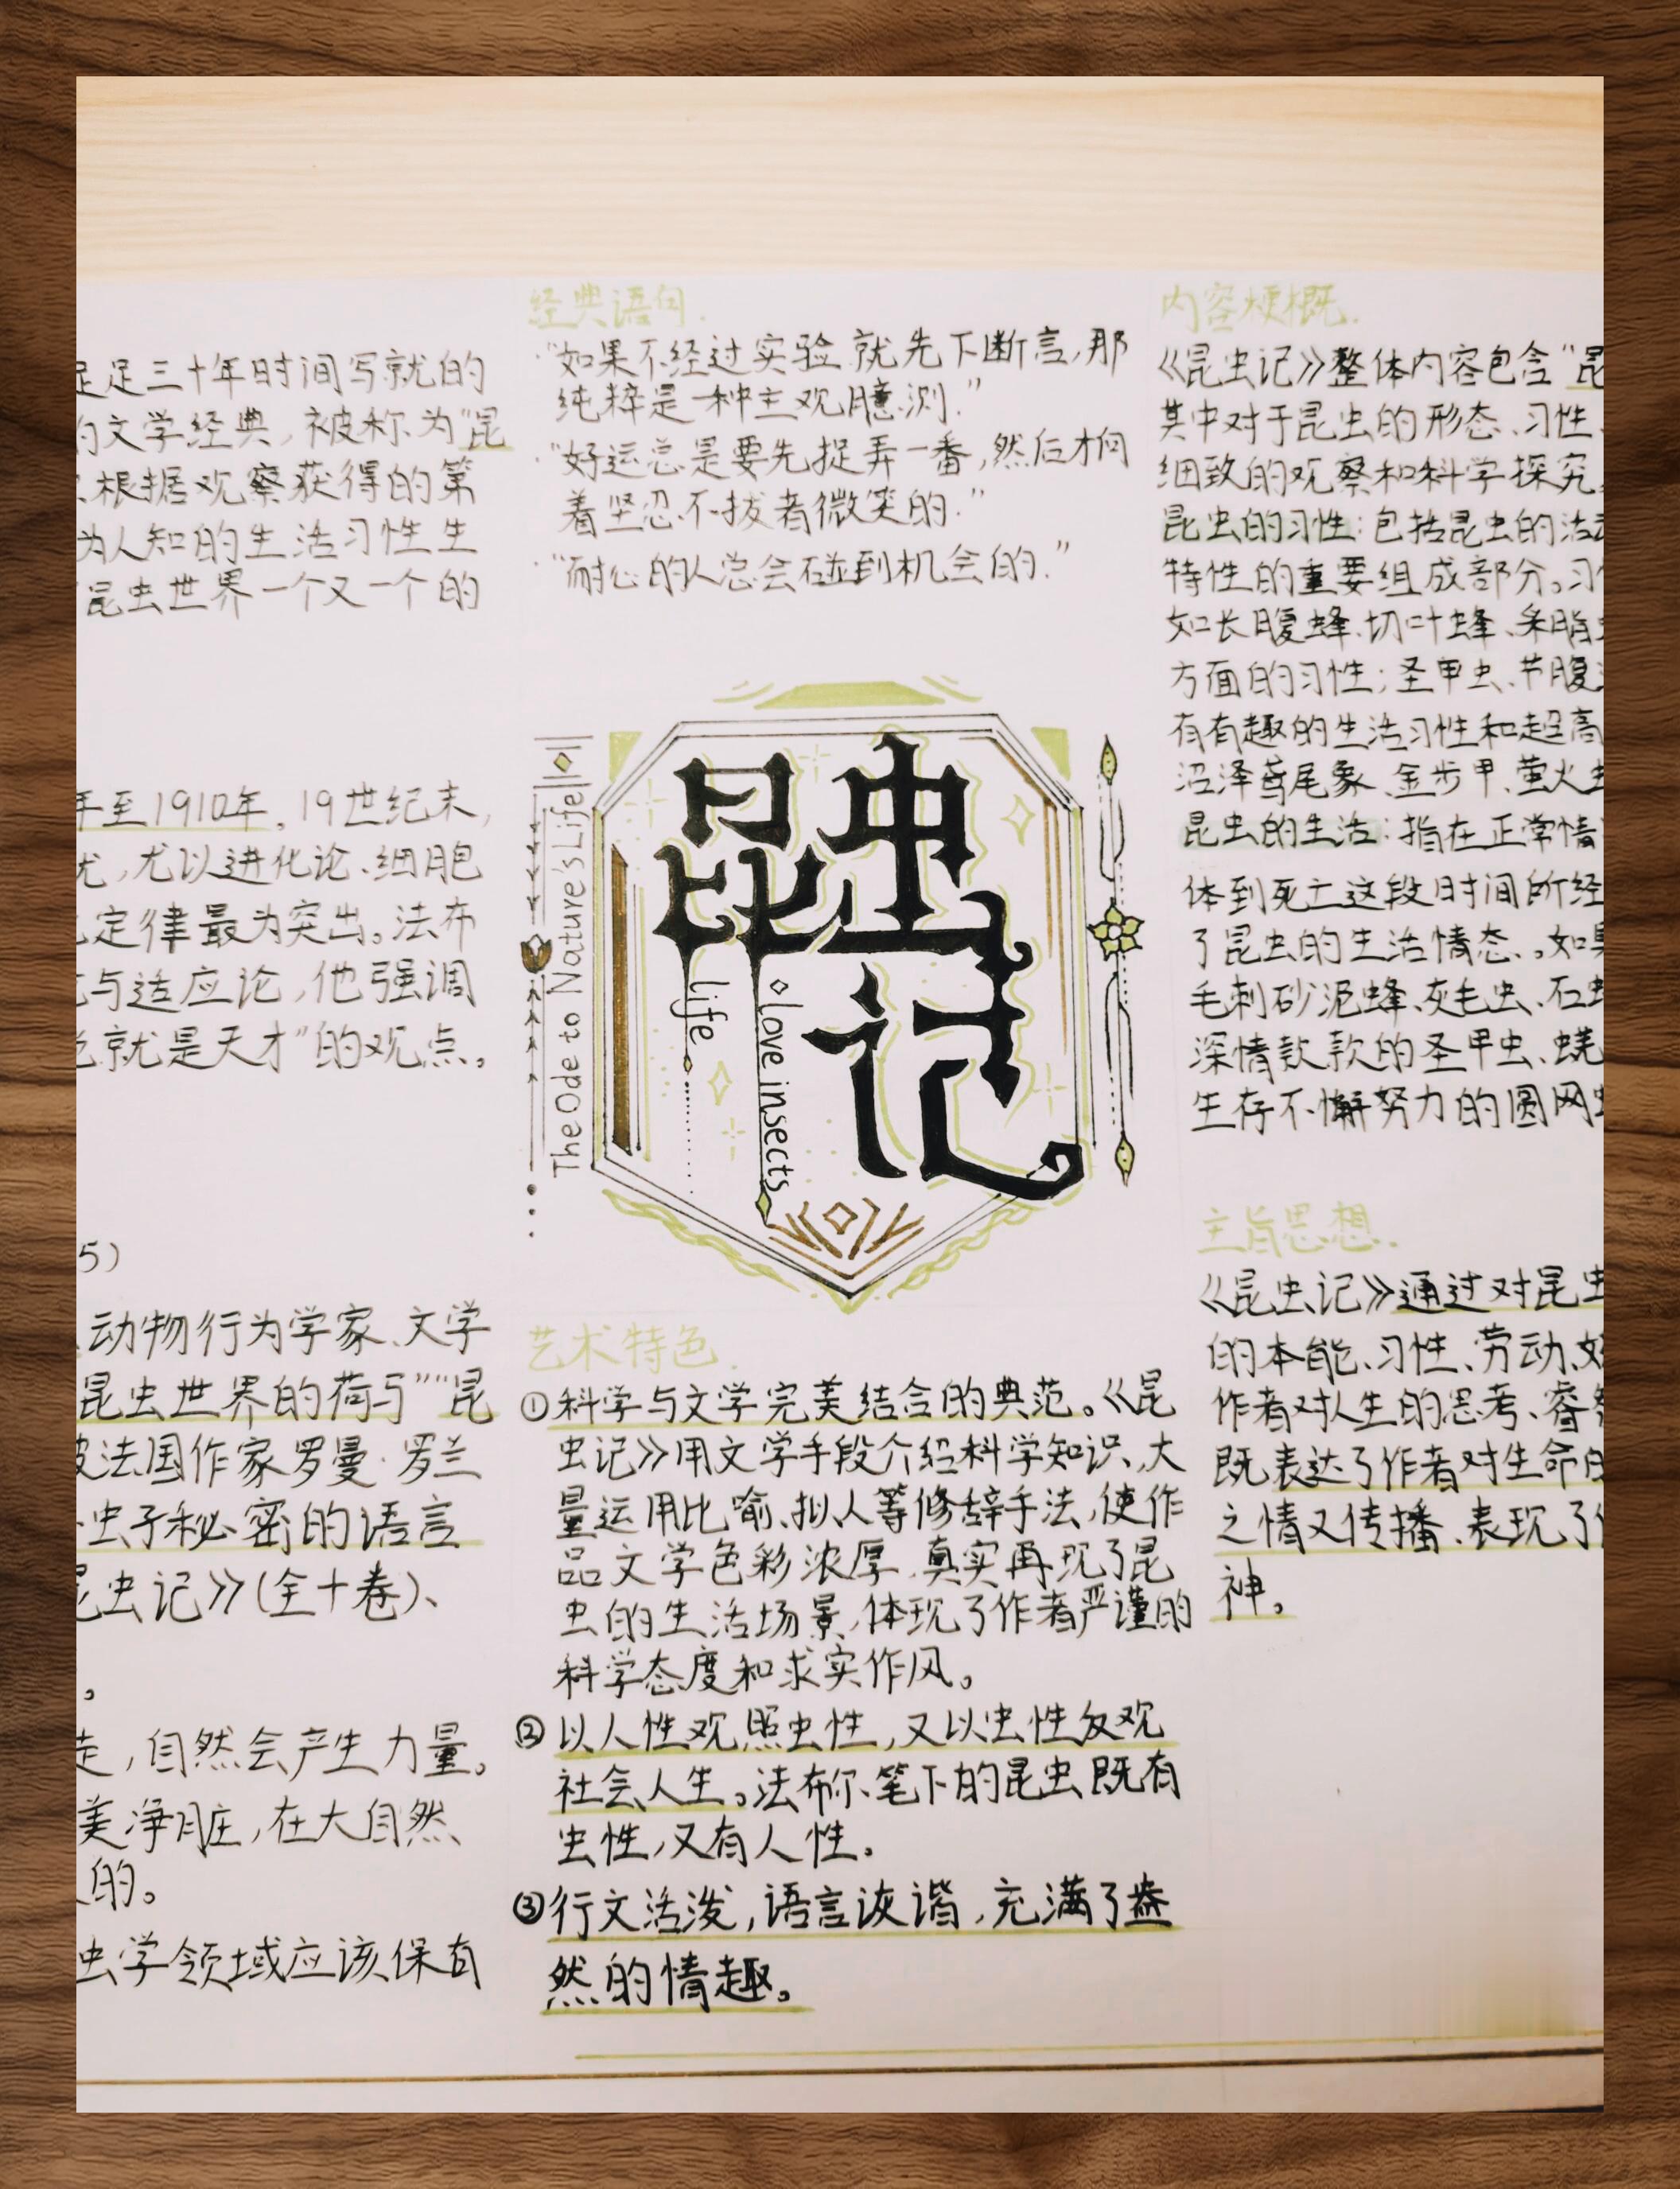 足足三十年时间写就的
的文学经典,被称为"昆
根据观察获得的第
为人知的生活习性生
昆虫世界一个又一个的
年至1910年。19世纪末,
尤以进化论、细胞
定律最为突出。法布
与适应论,他强调
就是天才"的观点。
5)
动物行为学家、文学
昆虫世界的荷马""昆
被法国作家罗曼·罗兰
虫子秘密的语言
昆虫记》(全十卷)、
。
走,自然会产生力量。
美净脏,在大自然、
的。
虫学领域应该保有
经典语句.
·"如果不经过实验就先下断言,那
纯粹是一种主观臆测."
·"好运总是要先捉弄一番,然后才向
着坚忍不拔者微笑的."
·"耐心的人总会碰到机会的."
The Ode to Nature's Life
昆虫记
life
love insects
艺术特色.
①科学与文学完美结合的典范。《昆
虫记》用文学手段介绍科学知识、大
量运用比喻、拟人等修辞手法,使作
品文学色彩浓厚,真实再现了昆
虫的生活场景,体现了作者严谨的
科学态度和求实作风。
②以人性观照虫性,又以虫性反观
社会人生。法布尔笔下的昆虫既有
虫性,又有人性。
③行文活泼,语言诙谐,充满了盎
然的情趣。
内容梗概.
《昆虫记》整体内容包含"昆
其中对于昆虫的形态、习性、
细致的观察和科学探究
昆虫的习性:包括昆虫的活动
特性的重要组成部分。习
如长腹蜂、切叶蜂、采脂
方面的习性;圣甲虫、节腹
有有趣的生活习性和超高
沼泽鸢尾象、金步甲、萤火虫
昆虫的生活:指在正常情
体到死亡这段时间所经
了昆虫的生活情态。如
毛刺砂泥蜂、灰毛虫、石
深情款款的圣甲虫、蜣
生存不懈努力的圆网
主旨思想.
《昆虫记》通过对昆虫
的本能、习性、劳动、
作者对人生的思考、睿
既表达了作者对生命
之情又传播、表现了
神。